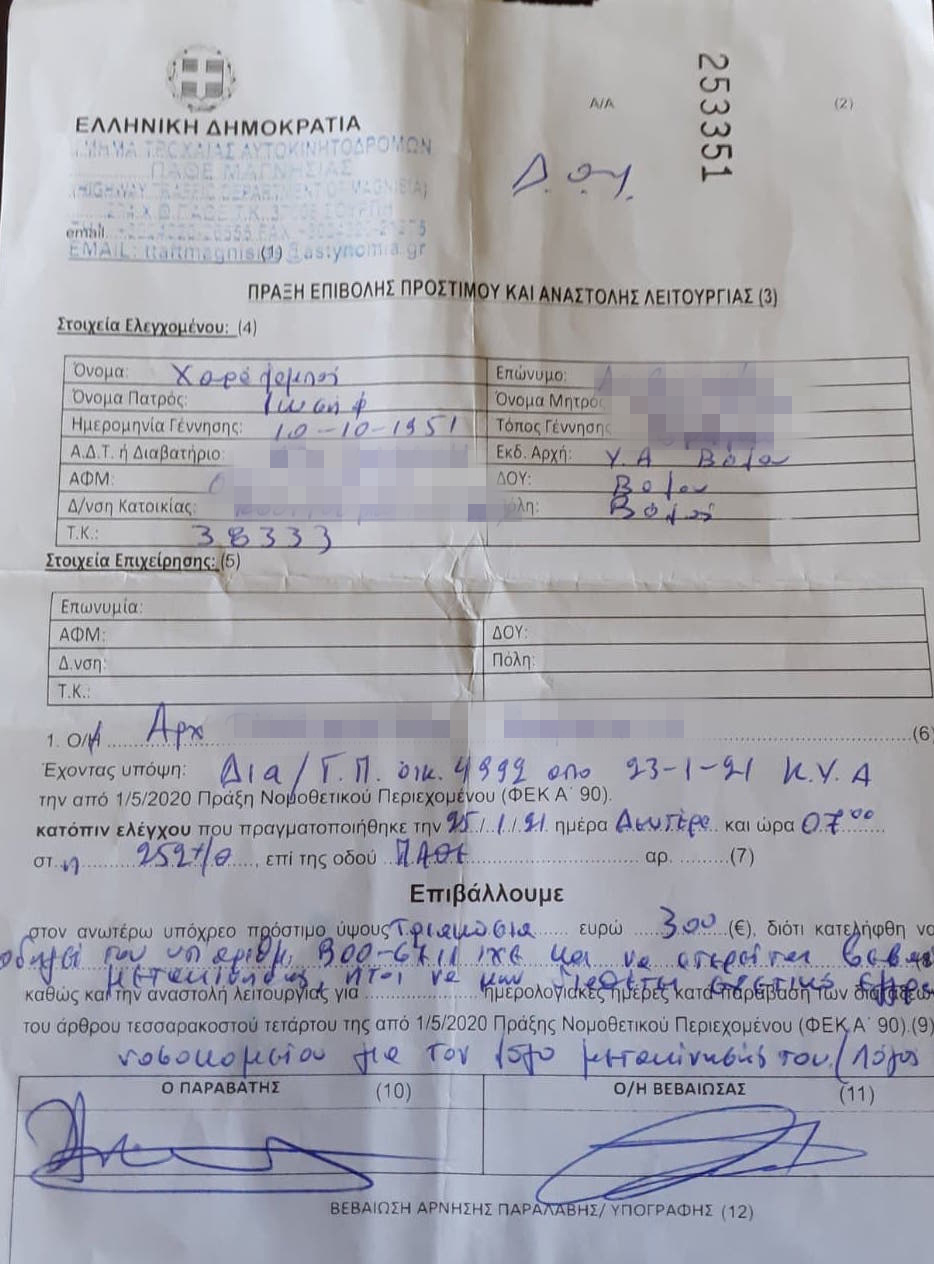 253351
Α/Α
(2)
ΕΛΛΗΝΙΚΗ ΔΗΜΟΚΡΑΤΙΑ
ΤΜΗΜΑ ΤΡΟΧΑΙΑΣ ΑΥΤΟΚΙΝΗΤΟΔΡΟΜΩΝ
ΠΑΘΕ ΜΑΓΝΗΣΙΑΣ
(HIGHWAY TRAFFIC DEPARTMENT OF MAGNISIA)
Δ.Ο.Υ.
email.
EMAIL: ttaitmagnisi(1)@astynomia.gr
ΠΡΑΞΗ ΕΠΙΒΟΛΗΣ ΠΡΟΣΤΙΜΟΥ ΚΑΙ ΑΝΑΣΤΟΛΗΣ ΛΕΙΤΟΥΡΓΙΑΣ (3)
Στοιχεία Ελεγχομένου: (4)
Όνομα: Χαράλαμπος Επώνυμο:
Όνομα Πατρός: Ιωσήφ Όνομα Μητρό
Ημερομηνία Γέννησης: 10-10-1951 Τόπος Γέννηση
Α.Δ.Τ. ή Διαβατήριο: Εκδ. Αρχή: Υ.Α Βόλου
ΑΦΜ: ΔΟΥ: Βόλου
Δ/νση Κατοικίας: όλη: Βόλος
Τ.Κ.: 38333
Στοιχεία Επιχείρησης: (5)
Επωνυμία:
ΑΦΜ: ΔΟΥ:
Δ.νση: Πόλη:
Τ.Κ.:
1. Ο/Η Αρχ (6)
Έχοντας υπόψη: Δ1α/Γ.Π. οικ. 4992 από 23-1-21 Κ.Υ.Α
την από 1/5/2020 Πράξη Νομοθετικού Περιεχομένου (ΦΕΚ Α΄ 90).
κατόπιν ελέγχου που πραγματοποιήθηκε την 25/1/21 ημέρα Δευτέρα και ώρα 0700
στ η 252 χ/θ, επί της οδού ΠΑΘΕ αρ. (7)
Επιβάλλουμε
στον ανωτέρω υπόχρεο πρόστιμο ύψους Τριακόσια ευρώ 300 (€), διότι κατελήφθη να
οδηγεί του υπ αριθμ. ΒΟΟ-6711 ΙΧΕ και να στερείται
μετακίνησης, ήτοι να μην διαθέτει σχετικό
καθώς και την αναστολή λειτουργίας για ημερολογιακές ημέρες κατά παράβαση των διατάξεων
του άρθρου τεσσαρακοστού τετάρτου της από 1/5/2020 Πράξης Νομοθετικού Περιεχομένου (ΦΕΚ Α΄ 90).(9)
νοσοκομείου για τον λόγο μετακίνησής του./Λόγος
Ο ΠΑΡΑΒΑΤΗΣ (10) Ο/Η ΒΕΒΑΙΩΣΑΣ (11)
ΒΕΒΑΙΩΣΗ ΑΡΝΗΣΗΣ ΠΑΡΑΛΑΒΗΣ/ ΥΠΟΓΡΑΦΗΣ (12)